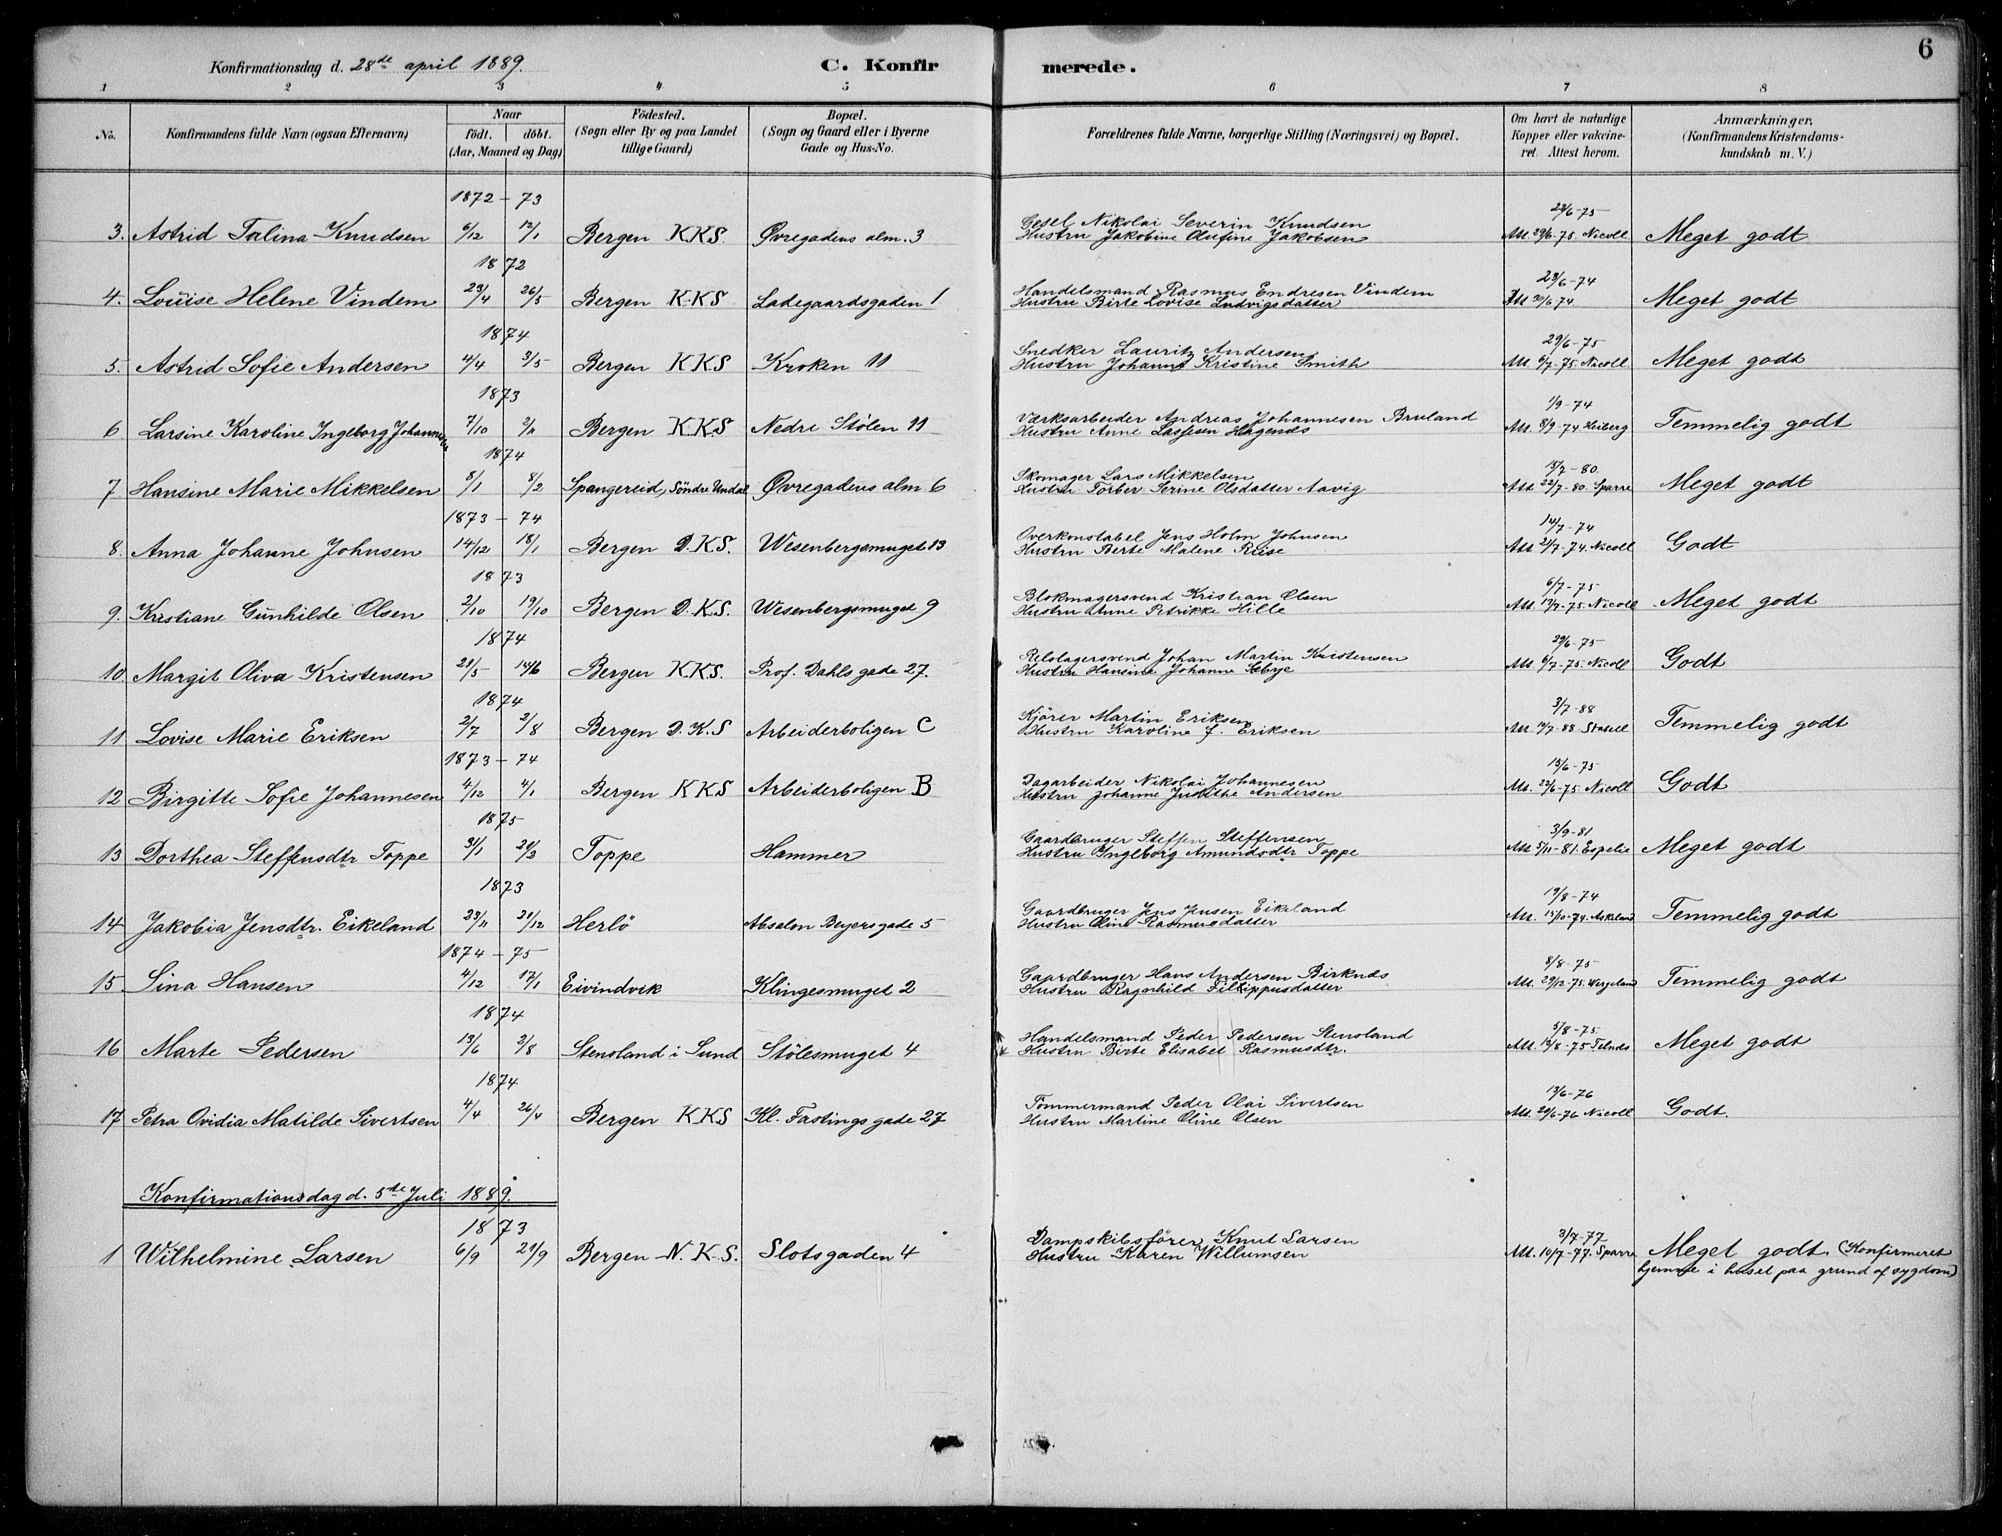 6
Konfirmationsdag d. 28de april 1889.
C. Konfirmerede.
1 2 3 4 5 6 7 8
No. Konfirmandens fulde Navn (ogsaa Efternavn) Naar födt. döbt. (Aar, Maaned og Dag) Födested. (Sogn eller By og paa Landet tillige Gaard) Bopæl. (Sogn og Gaard eller i Byerne Gade og Hus-No. Forældrenes fulde Navne, borgerlige Stilling (Næringsvei) og Bopæl. Om havt de naturlige Kopper eller vakcineret. Attest herom. Anmærkninger. (Konfirmandens Kristendomskundskab m. V.)
1872 - 73
3. Astrid Talina Knudsen 6/12 12/1 Bergen K.K.S. Øvregadens alm. 3 Gesel Nikolai Severin Knudsen Hustru Jakobine Olufine Jakobsen 22/6-75 Att. 29/6-75. Nicoll Meget godt
1872
4. Louise Helene Vindem 23/4 26/5 Bergen K.K.S Ladegaardsgaden 1 Handelsmand Rasmus Endresen Vindem Hustru Birte Lovise Ludvigsdatter 23/6-74 Att 30/6 74. Meget godt
1874
5. Astrid Sofie Andersen 4/4 3/5 Bergen KKS Kroken 11 Snedker Lauritz Andersen Hustru Johanne Kristine Smith 29/6-75 Att. 6/7-75. Nicoll Meget godt
1873
6 Larsine Karoline Ingeborg Johannesen 7/10 2/11 Bergen K.K.S Nedre Stølen 11 Værksarbeider Andreas Johannesen Bruland Hustru Anne Lassesen Hagenæs 1/9-74 Att. 8/9-74 Heiberg Temmelig godt
1874
7 Hansine Marie Mikkelsen 8/1 8/2 Spangereid, Söndre Undal Øvregadens alm 6 Skomager Lars Mikkelsen Hustru Torber Serine Olsdatter Aavig 15/7-80. Att 22/7-80. Sparre Meget godt
1873 - 74
8. Anna Johanne Johnsen 14/12 18/1 Bergen D.K.S. Wesenbergsmuget 13 Overkonstabel Jens Holm Johnsen Hustru Berte Malene Reise 14/7-74 Att 21/7-74. Nicoll Godt
1873
9. Kristiane Gunhilde Olsen 2/10 19/10 Bergen D.K.S. Wesenbergsmuget 9 Blokmagersvend Kristian Olsen Hustru Anne Petrikke Hille 6/7-75 Att. 13/7-75. Nicoll Meget godt
1874
10. Margit Oliva Kristensen 21/5 14/6 Bergen K.K.S. Prof. Dahls gade 27. Relslagersvend Johan Martin Kristensen Hustru Hansine Johanne Sebye 29/6-75 Att. 6/7-75. Nicoll Godt
1874
11 Lovise Marie Eriksen 2/7 2/8 Bergen D.K.S Arbeiderboligen C Kjörer Martin Eriksen Hustru Karoline f. Eriksen 3/7-88 Att. 10/7-88 Temmelig godt
1873 - 74
12 Birgitte Sofie Johannesen 4/12 4/1 Bergen KKS Arbeiderboligen B Dagarbeider Nikolai Johannesen Hustru Johanne Judithe Andersen 15/6-75 Att. 22/6-75 Nicoll Godt
1875
13 Dorthea Steffensdtr Toppe 31/1 21/3 Toppe Hammer Gaardbruger Steffen Steffensen Hustru Ingeborg Amundsdtr Toppe 3/9-81 Att 5/11-81. Espelie Meget godt
1873
14 Jakobia Jensdtr. Eikeland 23/11 21/12 Herlö Absalon Beyersgade 5 Gaardbruger Jens Jensen Eikeland Hustru Oline Rasmusdatter 19/8-74 Att. 15/10-74. Askeland Temmelig godt
1874 - 75
15 Sina Hansen 4/12 17/1 Eivindvik Klingesmuget 2 Gaardbruger Hans Andersen Birknæs Hustru Ragnhild Fillippusdatter 8/8-75 Att. 29/12-75. Wergeland Temmelig godt
1874
16 Marte Pedersen 13/6 2/8 Stensland i Sund Stölesmuget 4 Handelsmand Peder Pedersen Stensland Hustru Birte Elisabet Rasmusdtr. 5/8-75 Att. 12/8-75 Telnæs Meget godt
1874
17 Petra Ovidia Matilde Sivertsen 4/4 26/4 Bergen KKS Kl. Fastings gade 27 Tömmermand Peder Olai Sivertsen Hustru Martine Oline Olsen 13/6-76 Att. 20/6-76 Nicoll Godt.
Konfirmationsdag d. 5te Juli 1889.
1873
1 Wilhelmine Larsen 6/9 21/9 Bergen N.K.S. Slotsgaden 4 Dampskibsförer Knut Larsen Hustru Karen Willumsen 3/7-77 Att. 10/7-77. Sparre Meget godt. (Konfirmeret hjemme i huset paa grund af sygdom)